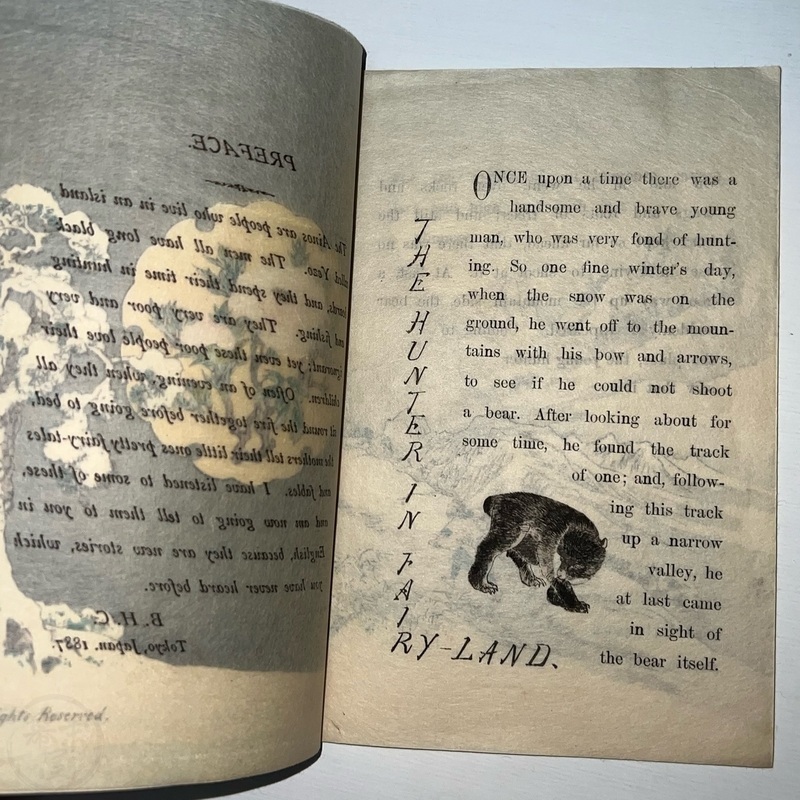 PREFACE.
The Ainos are people who live in an island
called Yezo. The men all have long black
beards, and they spend their time in hunting
and fishing. They are very poor and very
ignorant; yet even these poor people love their
children. Often of an evening, when they all
sit round the fire together before going to bed,
the mothers tell their little ones pretty fairy-tales
and fables. I have listened to some of these,
and am now going to tell them to you in
English, because they are new stories, which
you have never heard before.
B. H. C.
Tokyo, Japan. 1887.
ights Reserved.
THE HUNTER IN FAIRY-LAND.
ONCE upon a time there was a
handsome and brave young
man, who was very fond of hunt-
ing. So one fine winter's day,
when the snow was on the
ground, he went off to the moun-
tains with his bow and arrows,
to see if he could not shoot
a bear. After looking about for
some time, he found the track
of one; and, follow-
ing this track
up a narrow
valley, he
at last came
in sight of
the bear itself.